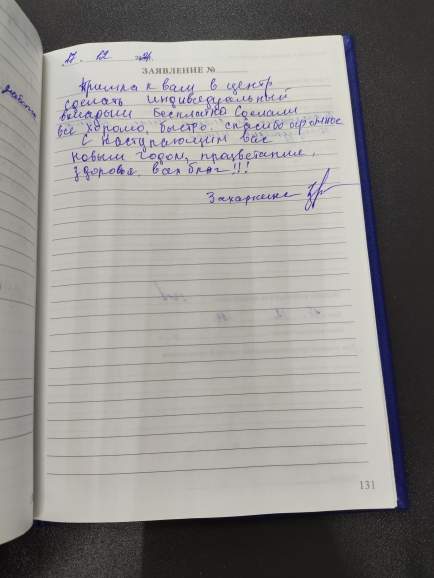 27. 12
ЗАЯВЛЕНИЕ №
Пришла к вам в центр
сделать индивидуальный
вкладыш бесплатно сделали
всё хорошо, быстро, спасибо огромное
С наступающим вас
новым годом, процветания,
здоровья, всех благ!!!
Захаркина
131